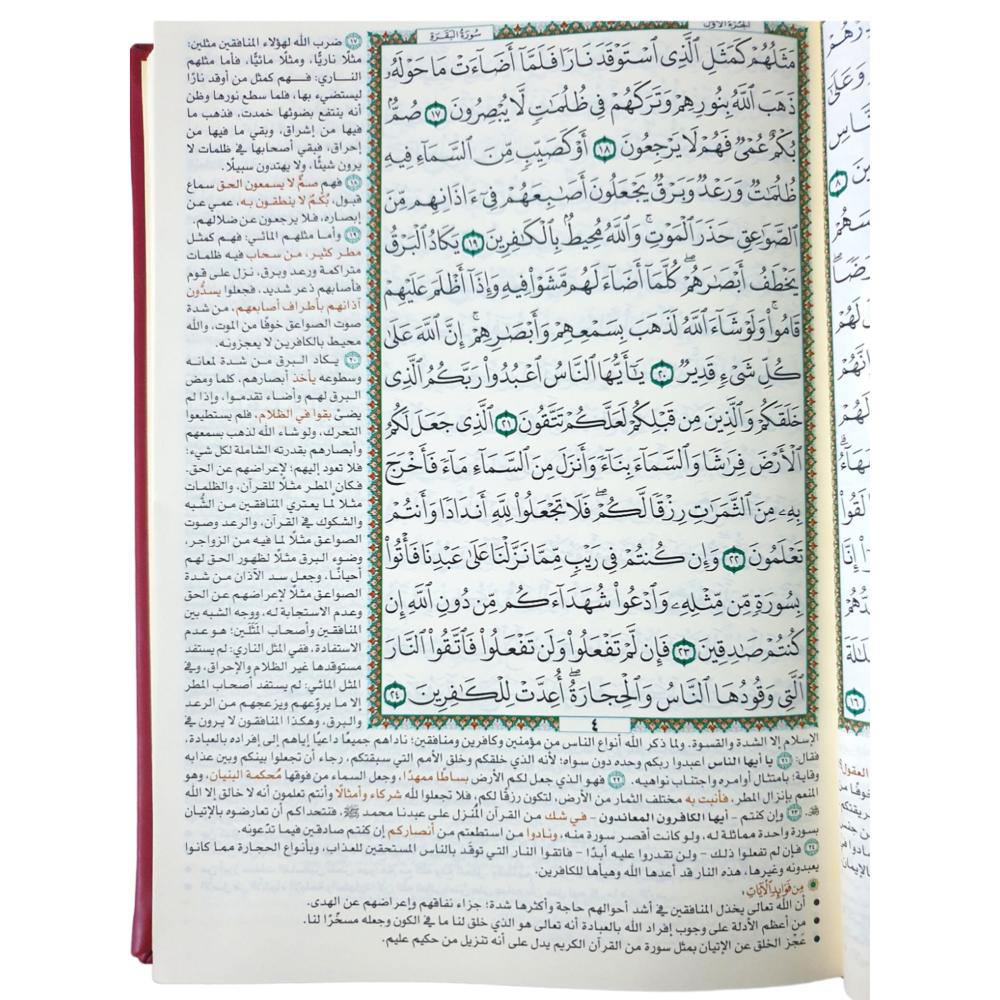 الجزء الأول
سُورَةُ البَقَرَةِ
مَثَلُهُمْ كَمَثَلِ ٱلَّذِى ٱسْتَوْقَدَ نَارًا فَلَمَّآ أَضَآءَتْ مَا حَوْلَهُۥ
ذَهَبَ ٱللَّهُ بِنُورِهِمْ وَتَرَكَهُمْ فِى ظُلُمَٰتٍ لَّا يُبْصِرُونَ ١٧ صُمٌّۢ
بُكْمٌ عُمْىٌ فَهُمْ لَا يَرْجِعُونَ ١٨ أَوْ كَصَيِّبٍ مِّنَ ٱلسَّمَآءِ فِيهِ
ظُلُمَٰتٌ وَرَعْدٌ وَبَرْقٌ يَجْعَلُونَ أَصَٰبِعَهُمْ فِىٓ ءَاذَانِهِم مِّنَ
ٱلصَّوَٰعِقِ حَذَرَ ٱلْمَوْتِ ۚ وَٱللَّهُ مُحِيطٌۢ بِٱلْكَٰفِرِينَ ١٩ يَكَادُ ٱلْبَرْقُ
يَخْطَفُ أَبْصَٰرَهُمْ ۖ كُلَّمَآ أَضَآءَ لَهُم مَّشَوْا۟ فِيهِ وَإِذَآ أَظْلَمَ عَلَيْهِمْ
قَامُوا۟ ۚ وَلَوْ شَآءَ ٱللَّهُ لَذَهَبَ بِسَمْعِهِمْ وَأَبْصَٰرِهِمْ ۚ إِنَّ ٱللَّهَ عَلَىٰ
كُلِّ شَىْءٍ قَدِيرٌ ٢٠ يَٰٓأَيُّهَا ٱلنَّاسُ ٱعْبُدُوا۟ رَبَّكُمُ ٱلَّذِى
خَلَقَكُمْ وَٱلَّذِينَ مِن قَبْلِكُمْ لَعَلَّكُمْ تَتَّقُونَ ٢١ ٱلَّذِى جَعَلَ لَكُمُ
ٱلْأَرْضَ فِرَٰشًا وَٱلسَّمَآءَ بِنَآءً وَأَنزَلَ مِنَ ٱلسَّمَآءِ مَآءً فَأَخْرَجَ
بِهِۦ مِنَ ٱلثَّمَرَٰتِ رِزْقًا لَّكُمْ ۖ فَلَا تَجْعَلُوا۟ لِلَّهِ أَندَادًا وَأَنتُمْ
تَعْلَمُونَ ٢٢ وَإِن كُنتُمْ فِى رَيْبٍ مِّمَّا نَزَّلْنَا عَلَىٰ عَبْدِنَا فَأْتُوا۟
بِسُورَةٍ مِّن مِّثْلِهِۦ وَٱدْعُوا۟ شُهَدَآءَكُم مِّن دُونِ ٱللَّهِ إِن
كُنتُمْ صَٰدِقِينَ ٢٣ فَإِن لَّمْ تَفْعَلُوا۟ وَلَن تَفْعَلُوا۟ فَٱتَّقُوا۟ ٱلنَّارَ
ٱلَّتِى وَقُودُهَا ٱلنَّاسُ وَٱلْحِجَارَةُ ۖ أُعِدَّتْ لِلْكَٰفِرِينَ ٢٤
٤
١٧ ضرب الله لهؤلاء المنافقين مثلين:
مثلًا ناريًّا، ومثلًا مائيًّا، فأما مثلهم
الناري: فهم كمثل من أوقد نارًا
ليستضيء بها، فلما سطع نورها وظن
أنه ينتفع بضوئها خمدت، فذهب ما
فيها من إشراق، وبقي ما فيها من
إحراق، فبقي أصحابها في ظلمات لا
يرون شيئًا، ولا يهتدون سبيلًا.
١٨ فهم صمٌّ لا يسمعون الحق سماع
قبول، بُكْمٌ لا ينطقون به، عمي عن
إبصاره، فلا يرجعون عن ضلالهم.
١٩ وأما مثلهم المائي: فهم كمثل
مطر كثير، من سحاب فيه ظلمات
متراكمة ورعد وبرق، نزل على قوم
فأصابهم ذعر شديد، فجعلوا يسدُّون
آذانهم بأطراف أصابعهم، من شدة
صوت الصواعق خوفًا من الموت، والله
محيط بالكافرين لا يعجزونه.
٢٠ يكاد البرق من شدة لمعانه
وسطوعه يأخذ أبصارهم، كلما ومض
البرق لهم وأضاء تقدموا، وإذا لم
يضئ بقوا في الظلام، فلم يستطيعوا
التحرك، ولو شاء الله لذهب بسمعهم
وأبصارهم بقدرته الشاملة لكل شيء؛
فلا تعود إليهم؛ لإعراضهم عن الحق.
فكان المطر مثلًا للقرآن، والظلمات
مثلًا لما يعتري المنافقين من الشُّبه
والشكوك في القرآن، والرعد وصوت
الصواعق مثلًا لما فيه من الزواجر،
وضوء البرق مثلًا لظهور الحق لهم
أحيانًا، وجعل سد الآذان من شدة
الصواعق مثلًا لإعراضهم عن الحق
وعدم الاستجابة له، ووجه الشبه بين
المنافقين وأصحاب المثلين؛ هو عدم
الاستفادة، ففي المثل الناري: لم يستفد
مستوقدها غير الظلام والإحراق، وفي
المثل المائي: لم يستفد أصحاب المطر
إلا ما يروِّعهم ويزعجهم من الرعد
والبرق، وهكذا المنافقون لا يرون في
الإسلام إلا الشدة والقسوة. ولما ذكر الله أنواع الناس من مؤمنين وكافرين ومنافقين؛ ناداهم جميعًا داعيًا إياهم إلى إفراده بالعبادة،
فقال: ٢١ يا أيها الناس اعبدوا ربكم وحده دون سواه؛ لأنه الذي خلقكم وخلق الأمم التي سبقتكم، رجاء أن تجعلوا بينكم وبين عذابه
وقاية؛ بامتثال أوامره واجتناب نواهيه. ٢٢ فهو الذي جعل لكم الأرض بساطًا ممهدًا، وجعل السماء من فوقها مُحكمة البنيان، وهو
المنعم بإنزال المطر، فأنبت به مختلف الثمار من الأرض، لتكون رزقًا لكم، فلا تجعلوا لله شركاء وأمثالًا وأنتم تعلمون أنه لا خالق إلا الله
ﷻ. ٢٣ وإن كنتم - أيها الكافرون المعاندون - في شك من القرآن المنزل على عبدنا محمد ﷺ، فنتحداكم أن تعارضوه بالإتيان
بسورة واحدة مماثلة له، ولو كانت أقصر سورة منه، ونادوا من استطعتم من أنصاركم إن كنتم صادقين فيما تدّعونه.
٢٤ فإن لم تفعلوا ذلك - ولن تقدروا عليه أبدًا - فاتقوا النار التي توقد بالناس المستحقين للعذاب، وبأنواع الحجارة مما كانوا
يعبدونه وغيرها، هذه النار قد أعدها الله وهيأها للكافرين.
مِن فَوَائِدِ الآيَاتِ:
• أن الله تعالى يخذل المنافقين في أشد أحوالهم حاجة وأكثرها شدة؛ جزاء نفاقهم وإعراضهم عن الهدى.
• من أعظم الأدلة على وجوب إفراد الله بالعبادة أنه تعالى هو الذي خلق لنا ما في الكون وجعله مسخّرًا لنا.
• عَجْز الخلق عن الإتيان بمثل سورة من القرآن الكريم يدل على أنه تنزيل من حكيم عليم.